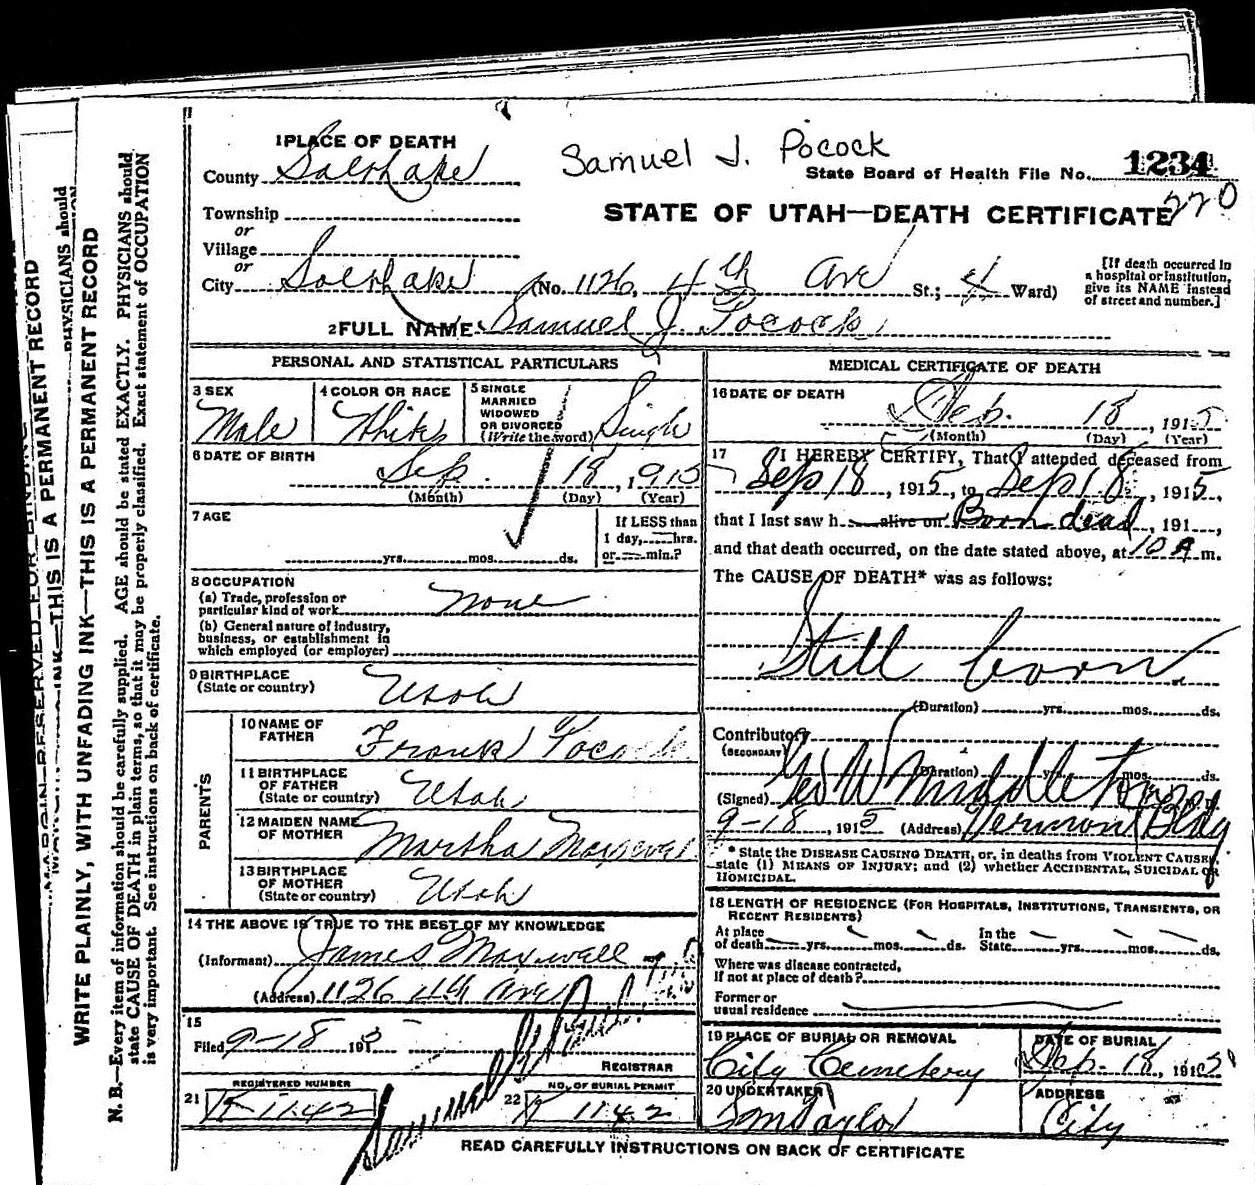 1 PLACE OF DEATH
County Salt Lake
Samuel J. Pocock
State Board of Health File No. 1234
220
Township
or
Village
or
City Salt Lake (No. 1126, 4th Ave St.; 4 Ward)
STATE OF UTAH—DEATH CERTIFICATE
[If death occurred in
a hospital or institution,
give its NAME instead
of street and number.]
2 FULL NAME Samuel J. Pocock
PERSONAL AND STATISTICAL PARTICULARS
3 SEX
Male
4 COLOR OR RACE
White
5 SINGLE
MARRIED
WIDOWED
OR DIVORCED
(Write the word) Single
6 DATE OF BIRTH
Sep. 18, 1915
(Month) (Day) (Year)
7 AGE
yrs. mos. ds.
If LESS than
1 day, hrs.
or min.?
8 OCCUPATION
(a) Trade, profession or
particular kind of work None
(b) General nature of industry,
business, or establishment in
which employed (or employer)
9 BIRTHPLACE
(State or country) Utah
PARENTS
10 NAME OF
FATHER Frank Pocock
11 BIRTHPLACE
OF FATHER
(State or country) Utah
12 MAIDEN NAME
OF MOTHER Martha Maxwell
13 BIRTHPLACE
OF MOTHER
(State or country) Utah
14 THE ABOVE IS TRUE TO THE BEST OF MY KNOWLEDGE
(Informant) James Maxwell
(Address) 1126 4th Ave
15
Filed 9-18 191
REGISTRAR
21 REGISTERED NUMBER
K 1142
22 NO. OF BURIAL PERMIT
K 1142
MEDICAL CERTIFICATE OF DEATH
16 DATE OF DEATH
Sep. 18, 1915
(Month) (Day) (Year)
17 I HEREBY CERTIFY, That I attended deceased from
Sep 18, 1915, to Sep 18, 1915,
that I last saw h alive on Born dead, 191,
and that death occurred, on the date stated above, at 10 A m.
The CAUSE OF DEATH* was as follows:
Still born
(Duration) yrs. mos. ds.
Contributory
(SECONDARY)
(Duration) yrs. mos. ds.
(Signed) Geo W Middleton M. D.
9-18, 1915 (Address) Vermont Bldg
* State the DISEASE CAUSING DEATH, or, in deaths from VIOLENT CAUSES,
state (1) MEANS OF INJURY; and (2) whether ACCIDENTAL, SUICIDAL OR
HOMICIDAL.
18 LENGTH OF RESIDENCE (FOR HOSPITALS, INSTITUTIONS, TRANSIENTS, OR
RECENT RESIDENTS)
At place In the
of death yrs. mos. ds. State yrs. mos. ds.
Where was disease contracted,
If not at place of death?
Former or
usual residence
19 PLACE OF BURIAL OR REMOVAL
City Cemetery
DATE OF BURIAL
Sep. 18, 1915
20 UNDERTAKER
S M Taylor
ADDRESS
City
READ CAREFULLY INSTRUCTIONS ON BACK OF CERTIFICATE
MARGIN RESERVED FOR BINDING
WRITE PLAINLY, WITH UNFADING INK—THIS IS A PERMANENT RECORD
N. B.—Every item of information should be carefully supplied. AGE should be stated EXACTLY. PHYSICIANS should
state CAUSE OF DEATH in plain terms, so that it may be properly classified. Exact statement of OCCUPATION
is very important. See instructions on back of certificate.
INK—THIS IS A PERMANENT RECORD
PHYSICIANS should